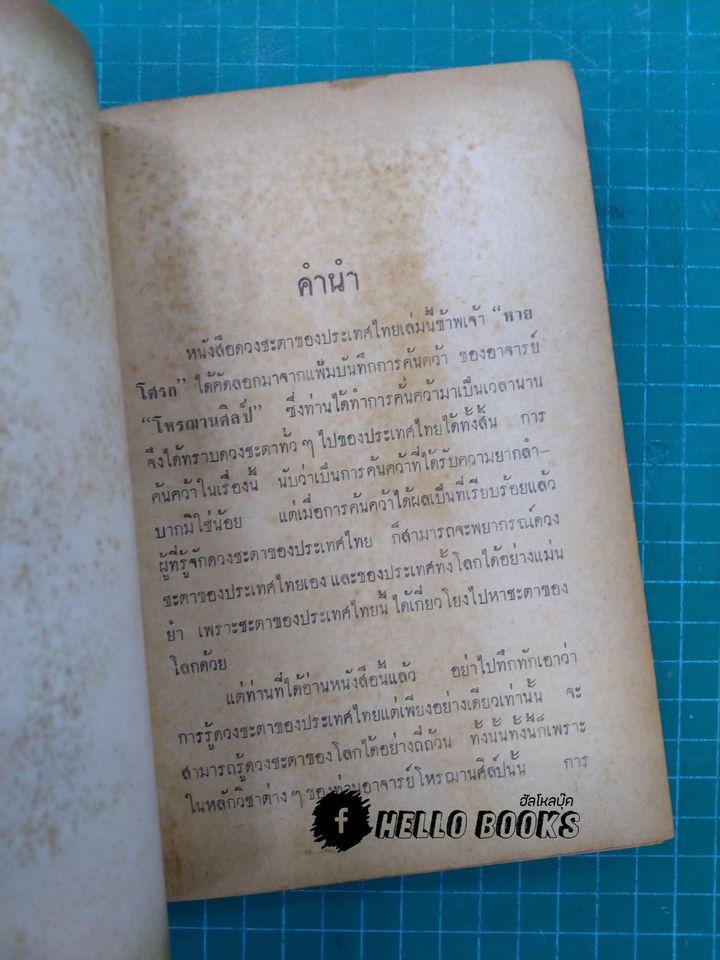 คำนำ
หนังสือดวงชะตาของประเทศไทยเล่มนี้ข้าพเจ้า "หาย
โศรก" ได้คัดลอกมาจากแฟ้มบันทึกการค้นคว้า ของอาจารย์
"โหรญานศิลป์" ซึ่งท่านได้ทำการค้นคว้ามาเป็นเวลานาน
จึงได้ทราบดวงชะตาทั่ว ๆ ไปของประเทศไทยได้ทั้งสิ้น การ
ค้นคว้าในเรื่องนี้ นับว่าเป็นการค้นคว้าที่ได้รับความยากลำ-
บากมิใช่น้อย แต่เมื่อการค้นคว้าได้ผลเป็นที่เรียบร้อยแล้ว
ผู้ที่รู้จักดวงชะตาของประเทศไทย ก็สามารถจะพยากรณ์ดวง
ชะตาของประเทศไทยเอง และของประเทศทั้งโลกได้อย่างแม่น
ยำ เพราะชะตาของประเทศไทยนี้ ได้เกี่ยวโยงไปหาชะตาของ
โลกด้วย
แต่ท่านที่ได้อ่านหนังสือนี้แล้ว อย่าไปทึกทักเอาว่า
การรู้ดวงชะตาของประเทศไทยแต่เพียงอย่างเดียวเท่านั้น จะ
สามารถรู้ดวงชะตาของโลกได้อย่างถี่ถ้วน ทั้งนั้นทั้งนี้ก็เพราะ
ในหลักวิชาต่าง ๆ ของท่านอาจารย์โหรญานศิลป์นั้น การ
ฮัลโหลบุ๊ค
f HELLO BOOKS